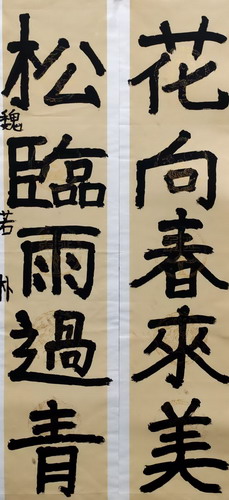 花向春來美
松臨雨過青
魏若朴